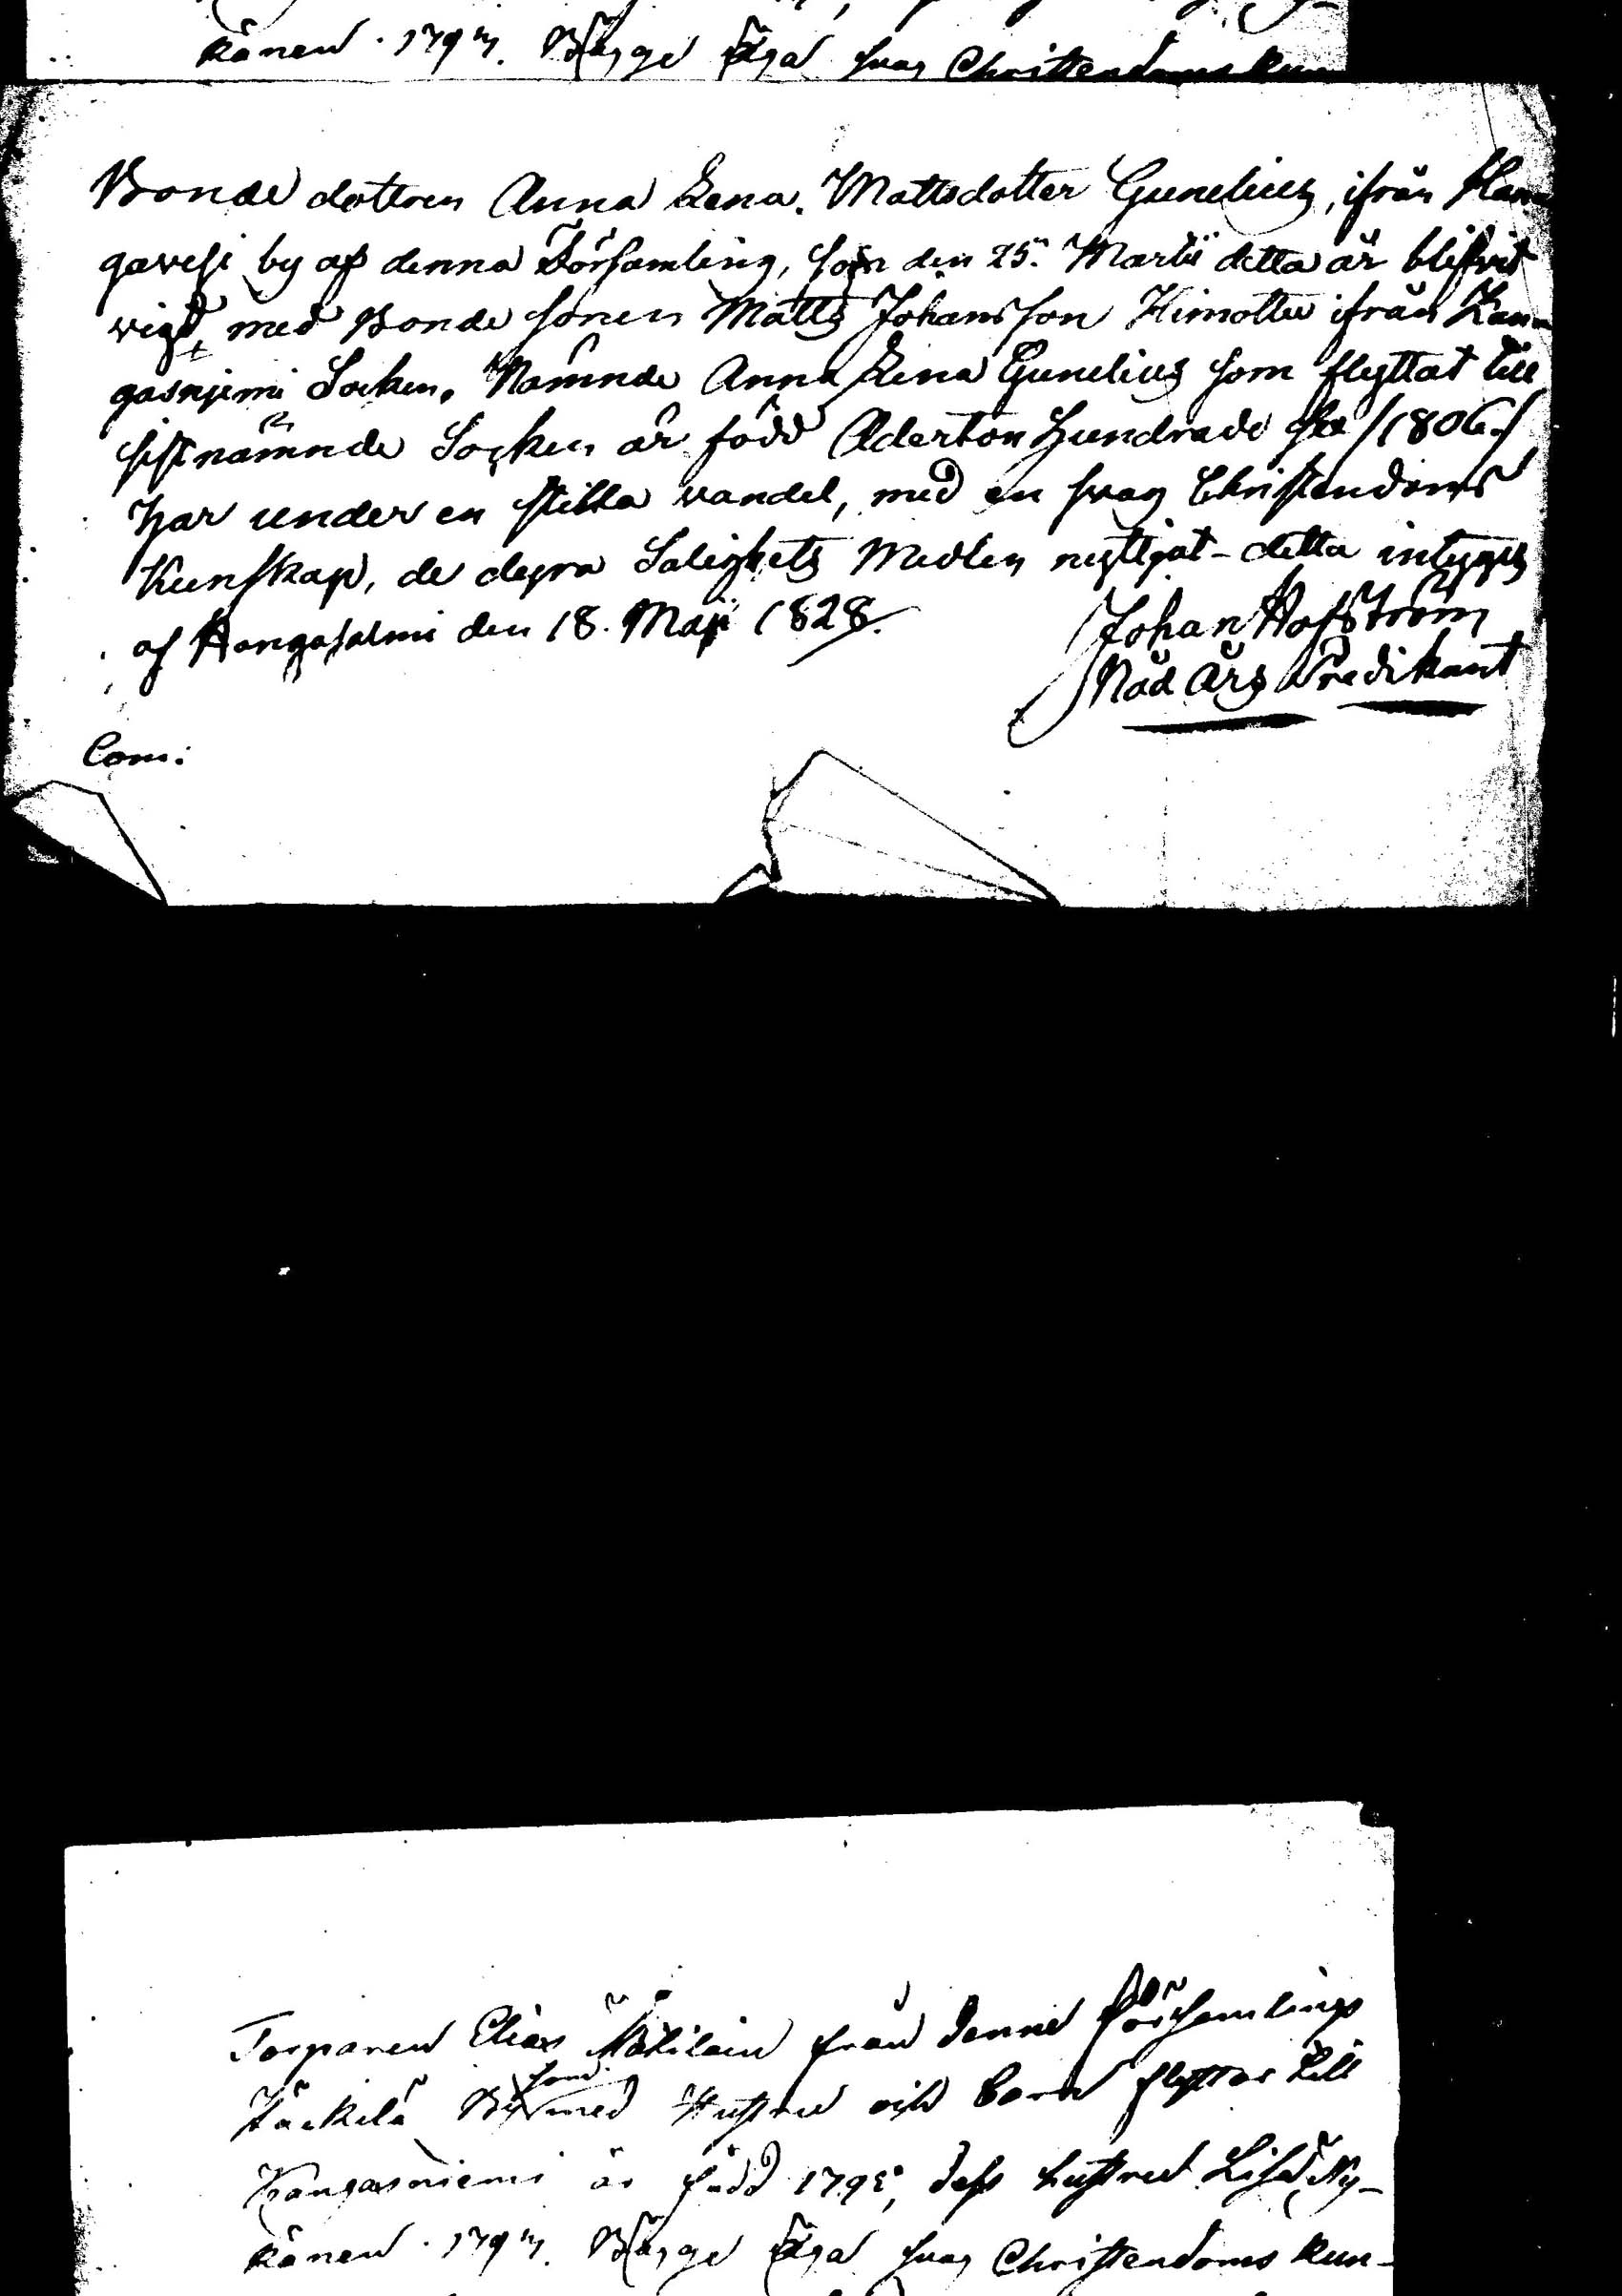 känen. 1797. Bägge äga svag Christendoms kun
Bonde dottren Anna Lena Mattsdotter Gunelius, ifrån Han-
gavesi by af denna Församling, som den 25. Martii detta år blifvit
vigd, med Bonde sonen Matts Johansson Himottu ifrån Kan-
gasnjemi Socken. Nämnde Anna Lena Gunelius som flyttat till
sistnämnde Socken är född Aderton Hundrade sex /1806./
har under en stilla vandel, med en svag Christendoms
Kunskap, de dyra Salighets Medlen nyttjat - detta intygas
af Hangasalmi den 18. Maji 1828.
Johan Hofström
Nåd Års Predikant
Com:
Torparen Elias från denne församlings
som
Käckelä By med Hustru och barn flyttar till
Kangasniemi är född 1795, dess hustru Lisa Ny-
känen. 1797. Bägge äga svag Christendoms kun-